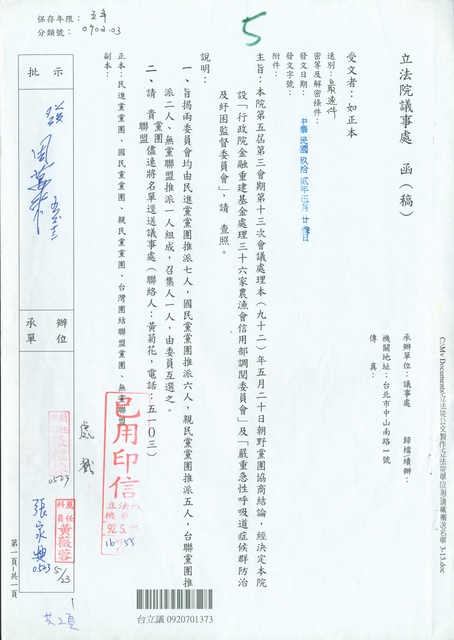 保存年限：五年
分類號：0702.03
5
立法院議事處　函（稿）
承辦單位：議事處　歸檔續辦：
機關地址：台北市中山南路一號
傳　真：
受文者：如正本
速別：最速件
密等及解密條件：
發文日期：中華民國玖拾貳年伍月廿參日
發文字號：
附件：
主旨：本院第五屆第三會期第十三次會議處理本（九十二）年五月二十日朝野黨團協商結論，經決定本院
設「行政院金融重建基金處理三十六家農漁會信用部調閱委員會」及「嚴重急性呼吸道症候群防治
及紓困監督委員會」，請　查照。
說明：
一、旨揭兩委員會均由民進黨黨團推派七人，國民黨黨團推派六人，親民黨黨團推派五人，台聯黨團推
派二人、無黨聯盟推派一人組成，召集人一人，由委員互選之。
二、請　貴黨團聯盟儘速將名單逕送議事處（聯絡人：黃菊花，電話：五一０三）
正本：民進黨黨團、國民黨黨團、親民黨黨團、台灣團結聯盟黨團、無黨聯盟
副本：
批　示
發
承辦單位
處戳
已用印信
立法院
92.5.
16 55
0523
科員 薦任 黃薇蓉
5/23
張家興
0523
共2頁
第一頁‧共一頁
台立議 0920701373